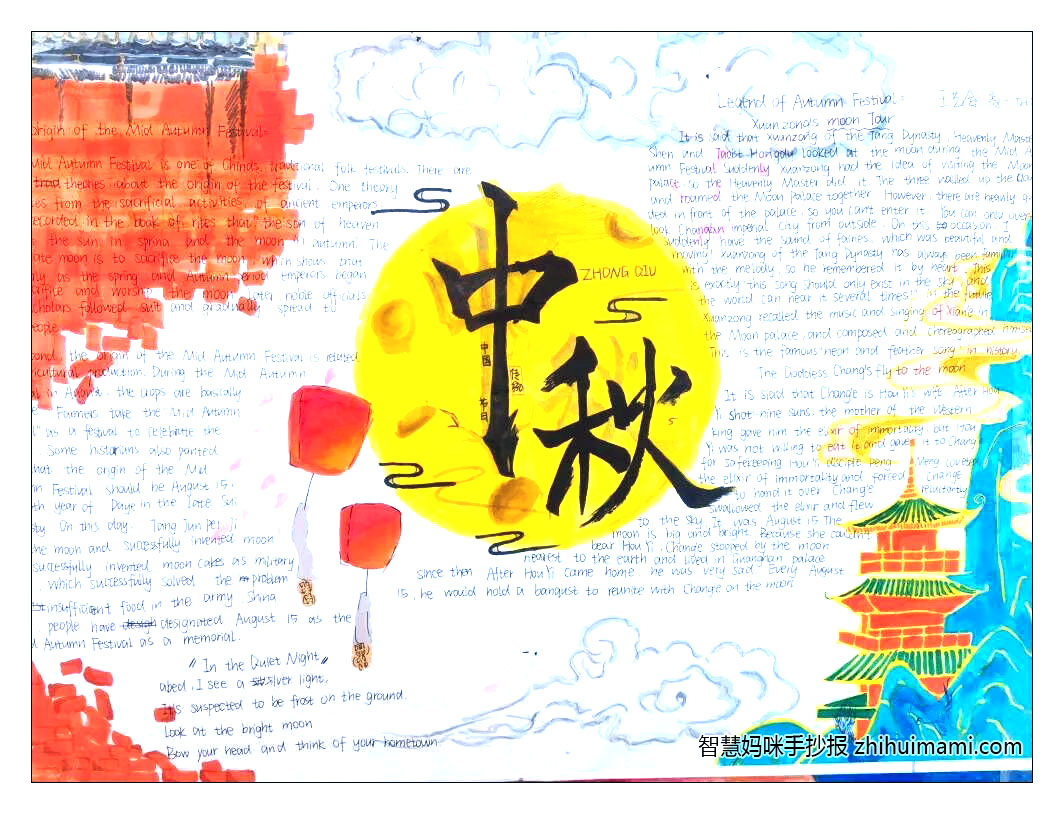 Origin of the Mid Autumn Festival
Mid Autumn Festival is one of China's traditional folk festivals. There are
theories about the origin of the festival. One theory
from the sacrificial activities of ancient emperors
recorded in the book of rites that "the son of heaven
the sun in spring and the moon in autumn. The
moon is to sacrifice the moon, which shows that
as the spring and Autumn period emperors began
sacrifice and worship the moon later noble officials
scholars followed suit and gradually spread to
people.
the origin of the Mid Autumn Festival is related
production. During the Mid Autumn
in August, the crops are basically
Farmers take the Mid Autumn
as a festival to celebrate the
Some historians also pointed
that the origin of the Mid
Festival should be August 15,
year of Daye in the late Sui
On this day. Tang Jun Pei Ji
the moon and successfully invented moon
successfully invented moon cakes as military
which successfully solved the problem
insufficient food in the army
people have designated August 15 as the
Autumn Festival as a memorial.
"In the Quiet Night"
abed, I see a silver light,
It's suspected to be frost on the ground.
Look at the bright moon
Bow your head and think of your hometown
中秋
ZHONG QIU
中国
传统
节日
Legend of Autumn Festival
Xuanzong's moon Tour
It is said that Xuanzong of the Tang Dynasty, Heavenly Master
Shen and Taoist Hongdu looked at the moon during the Mid
umn Festival suddenly xuanzong had the idea of visiting the Moon
palace, so the Heavenly Master did it. The three walked up the
and roamed the Moon palace together. However, there are heavily
in front of the palace, so you can't enter it. You can only over
look Changan imperial City from outside. On this occasion I
suddenly have the sound of fairies, which was beautiful and
moving! xuanzong of the Tang Dynasty has always been familiar
with the melody, so he remembered it by heart. This
is exactly this song should only exist in the sky and
the world can hear it several times! In the future
Xuanzong recalled the music and singing of Xiane in
the Moon palace, and composed and choreographed
This is the famous neon and feather song in history.
The Goddess Chang's fly to the moon
It is said that Chang'e is Hou Yi's wife. After Hou
Yi shot nine suns, the mother of the western
king gave him the elixir of immortality, but Hou
Yi was not willing to eat it and gave it to Chang'e
for safekeeping Hou Yi disciple Peng Meng coveted
the elixir of immortality and forced Chang'e
to hand it over Chang'e reluctantly
swallowed the elixir and flew
to the sky. It was August 15 The
moon is big and bright. Because she couldn't
bear Hou Yi, Chang'e stopped by the moon
nearest to the earth and lived in Guanghan palace
since then After Hou Yi came home, he was very sad. Every August
15, he would hold a banquet to reunite with Chang'e on the moon.
智慧妈咪手抄报 zhihuimami.com